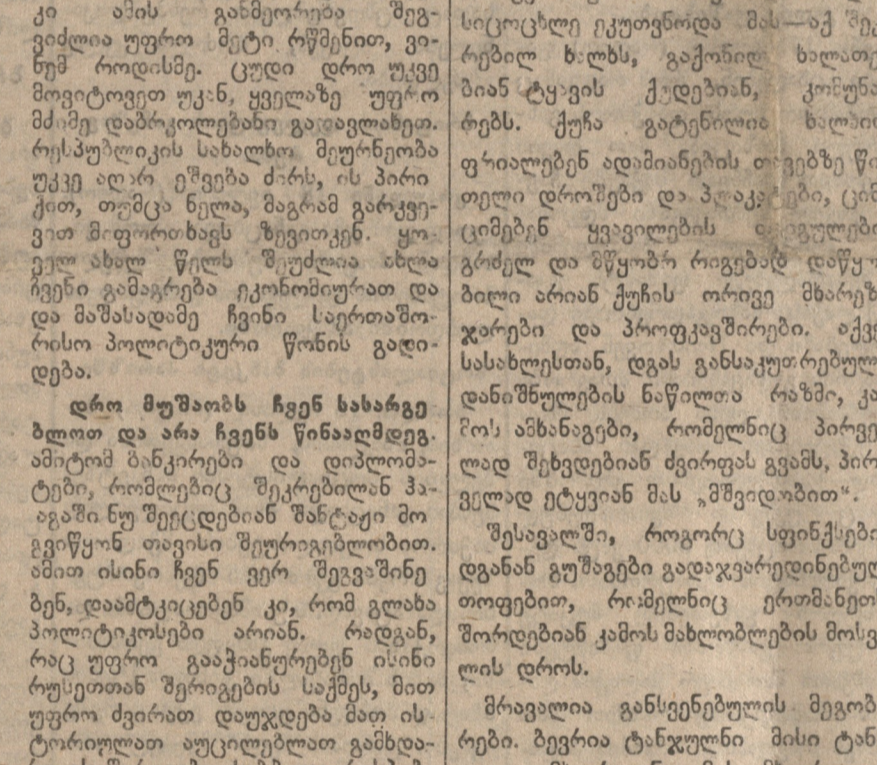 კი ამის განმეორება შეგ-
ვიძლია უფრო მეტი რწმენით, ვი-
ნემ როდისმე. ცუდი დრო უკვე
მოვიტოვეთ უკან, ყველაზე უფრო
მძიმე დაბრკოლებანი გადავლახეთ.
რესპუბლიკის სახალხო მეურნეობა
უკვე აღარ ეშვება ძირს, ის პირი
ქით, თუმცა ნელა, მაგრამ გარკვე-
ვით მიფორთხავს ზევითკენ. ყო-
ველ ახალ წელს შეუძლია ახლა
ჩვენი გამაგრება ეკონომიურათ და
და მაშასადამე ჩვინი საერთაშო-
რისო პოლიტიკური წონის გადი-
დება.
დრო მუშაობს ჩვენ სასარგე
ბლოთ და არა ჩვენს წინააღმდეგ.
ამიტომ ბანკირები და დიპლომა-
ტები, რომლებიც შეკრებილან ჰა-
აგაში ნუ შეეცდებიან შანტაჟი მო
გვიწყონ თავისი შეურიგებლობით.
ამით ისინი ჩვენ ვერ შეგვაშინე
ბენ, დაამტკიცებენ კი, რომ გლახა
პოლიტიკოსები არიან. რადგან,
რაც უფრო გააჭიანურებენ ისინი
რუსეთთან შერიგების საქმეს, მით
უფრო ძვირათ დაუჯდება მათ ის-
ტორიულათ აუცილებლათ გამხდა-
სიცოცხლე ეკუთვნოდა მას—აქ შეკ
რებილ ხალხს, გაქონილ ხალათე
ბიან ტყავის ქუდებიან, კომუნა
რებს. ქუჩა გატენილია
ფრიალებენ ადამიანების თავებზე წი
თელი დროშები და პლაკატები, ციმ
ციმებენ ყვავილების
გრძელ და მწყობრ რიგებად დაწყო
ბილი არიან ქუჩის ორივე მხარეზ
ჯარები და პროფკავშირები. აქვე
სასახლესთან, დგას განსაკუთრებულ
დანიშნულების ნაწილთა რაზმი, კა
მოს ამხანაგები, რომელნიც პირვე
ლად შეხვდებიან ძვირფას გვამს, პირ
ველად ეტყვიან მას „მშვიდობით“.
შესავალში, როგორც სფინქსები
დგანან გუშაგები გადაჯვარედინებულ
თოფებით, რომელნიც ერთმანეთ
შორდებიან კამოს მახლობლების მოსვ
ლის დროს.
მრავალია განსვენებულის მეგობ
რები. ბევრია ტანჯულნი მისი ტან